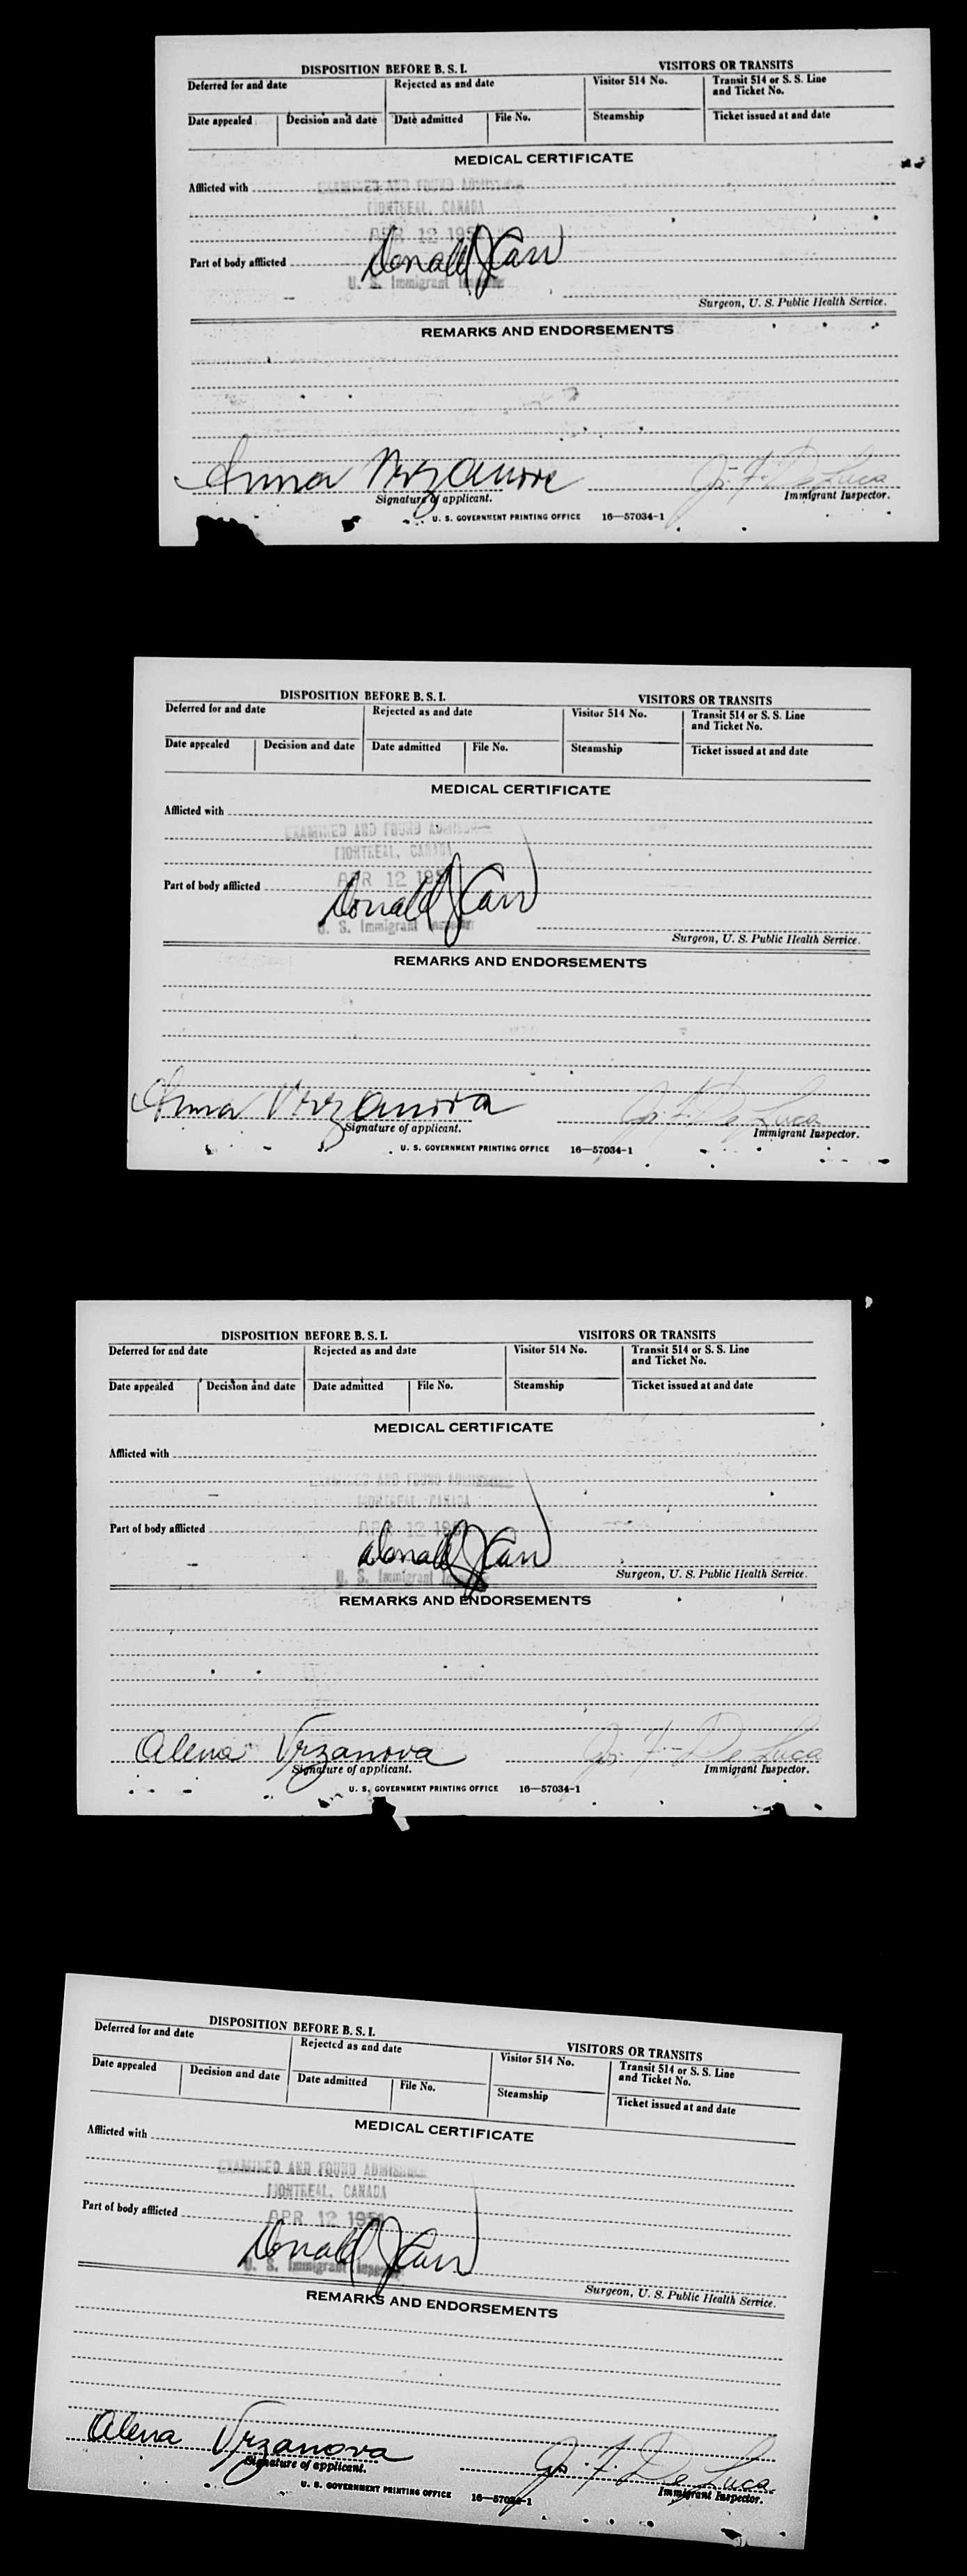 DISPOSITION BEFORE B. S. I. VISITORS OR TRANSITS
Deferred for and date Rejected as and date Visitor 514 No. Transit 514 or S. S. Line
and Ticket No.
Date appealed Decision and date Date admitted File No. Steamship Ticket issued at and date
MEDICAL CERTIFICATE
Afflicted with
EXAMINED AND FOUND
MONTREAL, CANADA
APR 12 195
Part of body afflicted Donald J Carr
U. S. Immigrant
Surgeon, U. S. Public Health Service.
REMARKS AND ENDORSEMENTS
Anna Jos. F. De Luca
Signature of applicant. Immigrant Inspector.
U. S. GOVERNMENT PRINTING OFFICE 16—57034-1
DISPOSITION BEFORE B. S. I. VISITORS OR TRANSITS
Deferred for and date Rejected as and date Visitor 514 No. Transit 514 or S. S. Line
and Ticket No.
Date appealed Decision and date Date admitted File No. Steamship Ticket issued at and date
MEDICAL CERTIFICATE
Afflicted with
EXAMINED AND FOUND
MONTREAL, CANADA
APR 12 195
Part of body afflicted Donald J Carr
U. S. Immigrant
Surgeon, U. S. Public Health Service.
REMARKS AND ENDORSEMENTS
Anna Vrzanova Jos. F. De Luca
Signature of applicant. Immigrant Inspector.
U. S. GOVERNMENT PRINTING OFFICE 16—57034-1
DISPOSITION BEFORE B. S. I. VISITORS OR TRANSITS
Deferred for and date Rejected as and date Visitor 514 No. Transit 514 or S. S. Line
and Ticket No.
Date appealed Decision and date Date admitted File No. Steamship Ticket issued at and date
MEDICAL CERTIFICATE
Afflicted with
EXAMINED AND FOUND
MONTREAL, CANADA
APR 12 195
Part of body afflicted Donald J Carr
U. S. Immigrant
Surgeon, U. S. Public Health Service.
REMARKS AND ENDORSEMENTS
Alena Vrzanova Jos. F. De Luca
Signature of applicant. Immigrant Inspector.
U. S. GOVERNMENT PRINTING OFFICE 16—57034-1
DISPOSITION BEFORE B. S. I. VISITORS OR TRANSITS
Deferred for and date Rejected as and date Visitor 514 No. Transit 514 or S. S. Line
and Ticket No.
Date appealed Decision and date Date admitted File No. Steamship Ticket issued at and date
MEDICAL CERTIFICATE
Afflicted with
EXAMINED AND FOUND ADMISSIBLE
MONTREAL, CANADA
APR 12 195
Part of body afflicted Donald J Carr
U. S. Immigrant Inspector
Surgeon, U. S. Public Health Service.
REMARKS AND ENDORSEMENTS
Alena Vrzanova Jos. F. De Luca
Signature of applicant. Immigrant Inspector.
U. S. GOVERNMENT PRINTING OFFICE 16—57034-1